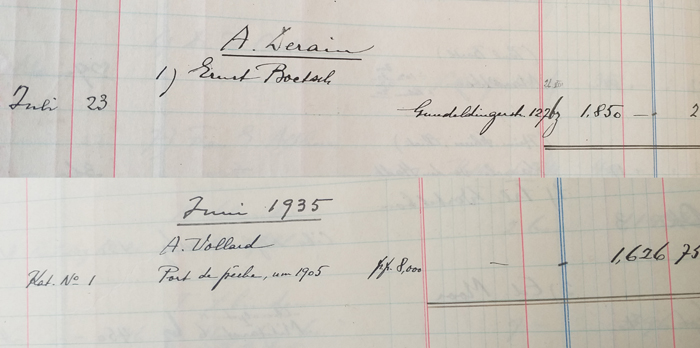 A. Derain
1) Ernst Boetsch
Juli 23 Gundeldingerstr. 127 bz 1,850 — 2
Juni 1935
A. Vollard
Kat. No 1 Port de pêche, um 1905 ffr. 8,000 — - 1,626 75